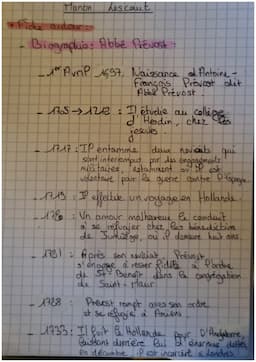 Manon Lescaut
• Fiche auteur:
- Biographie: Abbé Prévost
- 1er Avril 1697. Naissance d'Antoine-
François Prévost dit
Abbé Prévost.
- → : Il étudie au collège
d'Hesdin, chez les
jésuites
- 1717: Il entamme deux noviciats qui
sont interrompus par des engagements
militaires, notamment où il est
volontaire pour la guerre contre l'Espagne.
- 1719: Il effectue un voyage en Hollande.
- Un amour malheureux le conduit
à se réfugier chez les bénédictins
de Jumièges, où il demeure huit ans.
- 1721: Après son noviciat, Prévost
s'engage à rester fidèle à l'ordre
de St Benoît dans la congrégation
de Saint-Maur
- 1728 Prévost rompt avec son ordre
et se réfugie à
- 1733: Il fuit la Hollande pour l'Angleterre,
laissant derrière lui d'énormes dettes.
En décembre, il est incarcéré à Londres